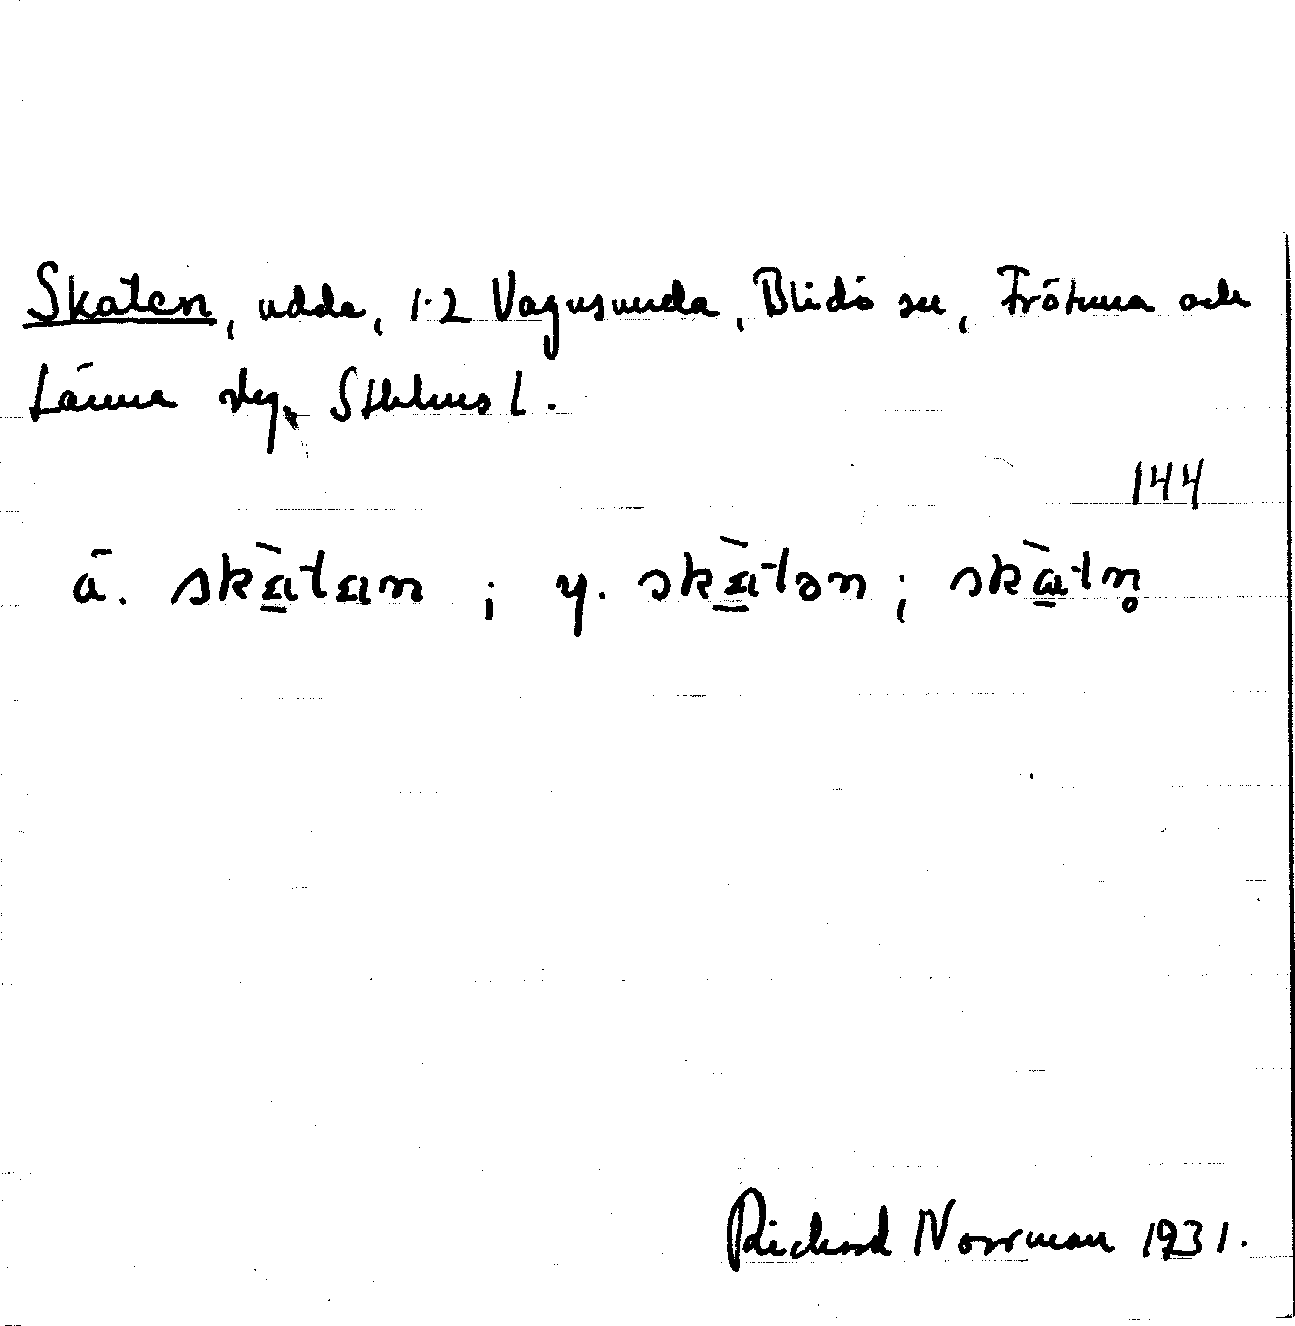 Skaten, udda, 1-2 Vagnsunda, Blidö sn, Frötuna och
Länna skg. Sthlms l.
144
ä. skàtan ; y. skàtən ; skàtn̥
Richard Norrman 1931.